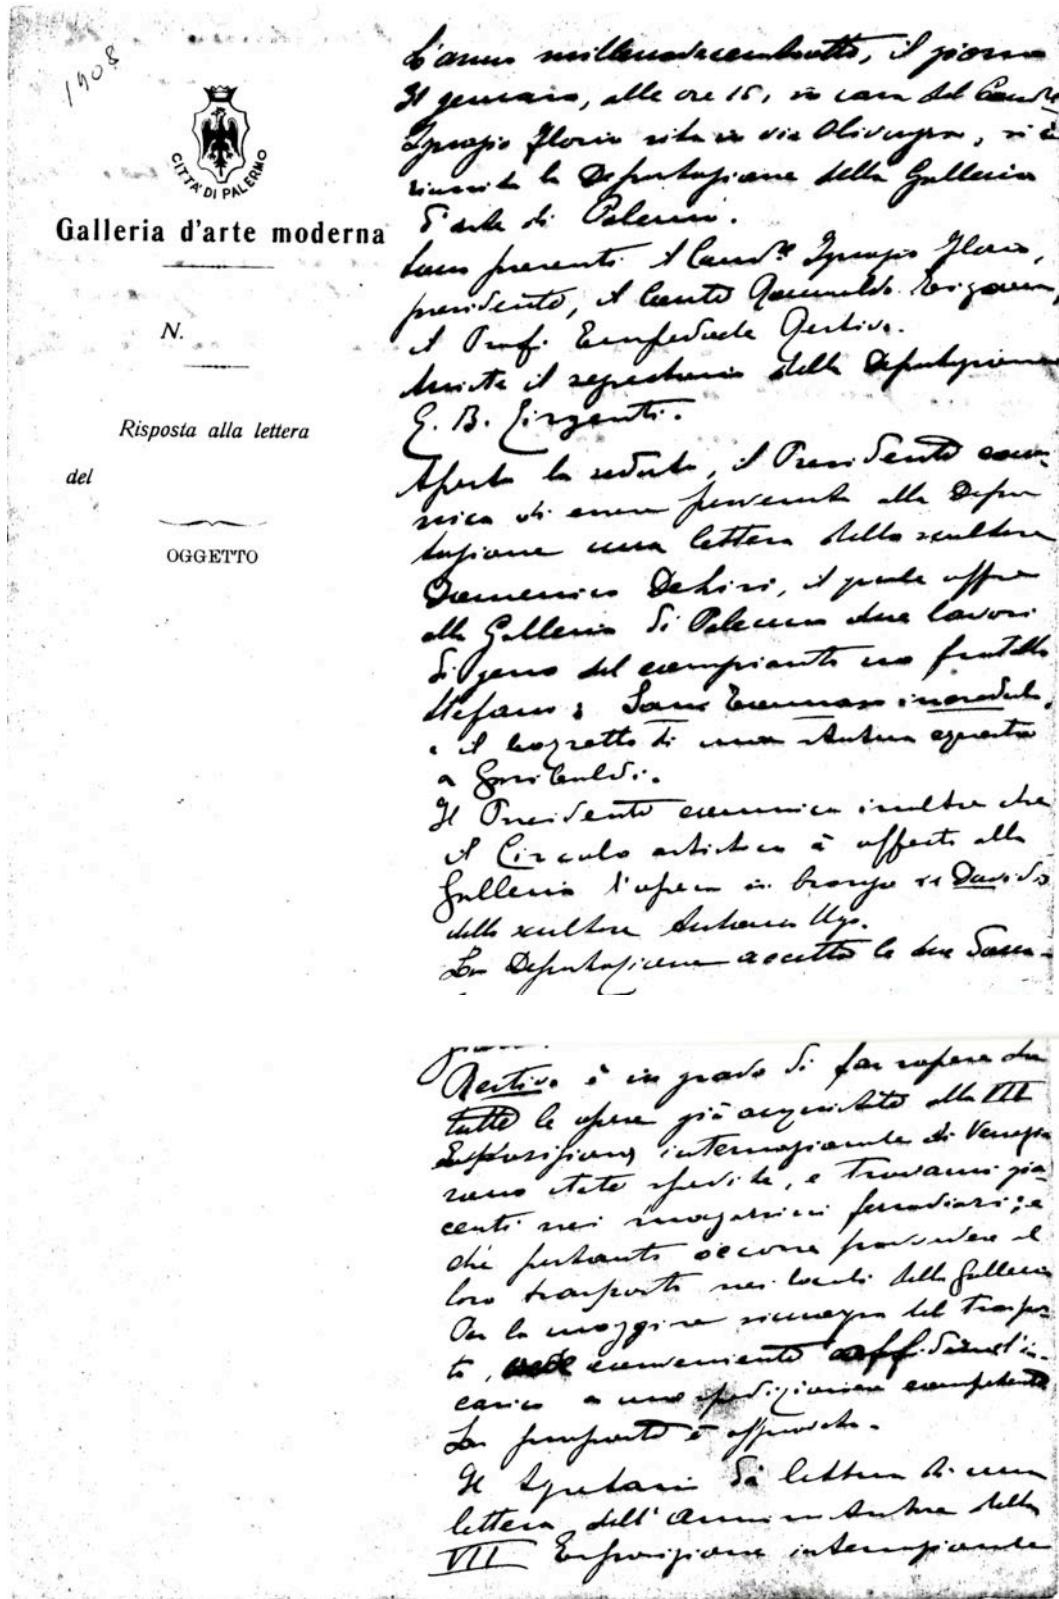 1908
CITTA' DI PALERMO
Galleria d'arte moderna
N.
Risposta alla lettera
del
OGGETTO
L'anno millenovecentootto, il giorno
31 gennaio, alle ore 15, in casa del Comm.re
Ignazio Florio sita in via Olivuzza, si è
riunita la Deputazione della Galleria
d'arte di Palermo.
Sono presenti il Comm.re Ignazio Florio,
presidente, il Conte Romualdo Trigona,
il Prof. Empedocle Restivo.
Assiste il segretario della Deputazione
G. B. Girgenti.
Aperta la seduta, il Presidente comu-
nica di essere pervenuta alla Depu
tazione una lettera dello scultore
Domenico DeLisi, il quale offre
alla Galleria di Palermo due lavori
di gesso del compianto suo fratello
Stefano: San Tommaso incredulo,
e il bozzetto di una statua equestre
a Garibaldi.
Il Presidente comunica inoltre che
il Circolo artistico à offerto alla
Galleria l'opera in bronzo il David
dello scultore Antonio Ugo.
La Deputazione accetta le due
Restivo è in grado di far sapere che
tutte le opere già acquistate alla VII
Esposizione internazionale di Venezia
sono state spedite, e trovansi gia-
centi nei magazzini ferroviari; e
che pertanto occorre provvedere al
loro trasporto nei locali della Galleria
Per la maggiore sicurezza del traspor-
to, conveniente affidare l'in-
carico a uno spedizioniere competente
La proposta è approvata.
Il Segretario dà lettura di una
lettera dell'Amministratore della
VII Esposizione internazionale